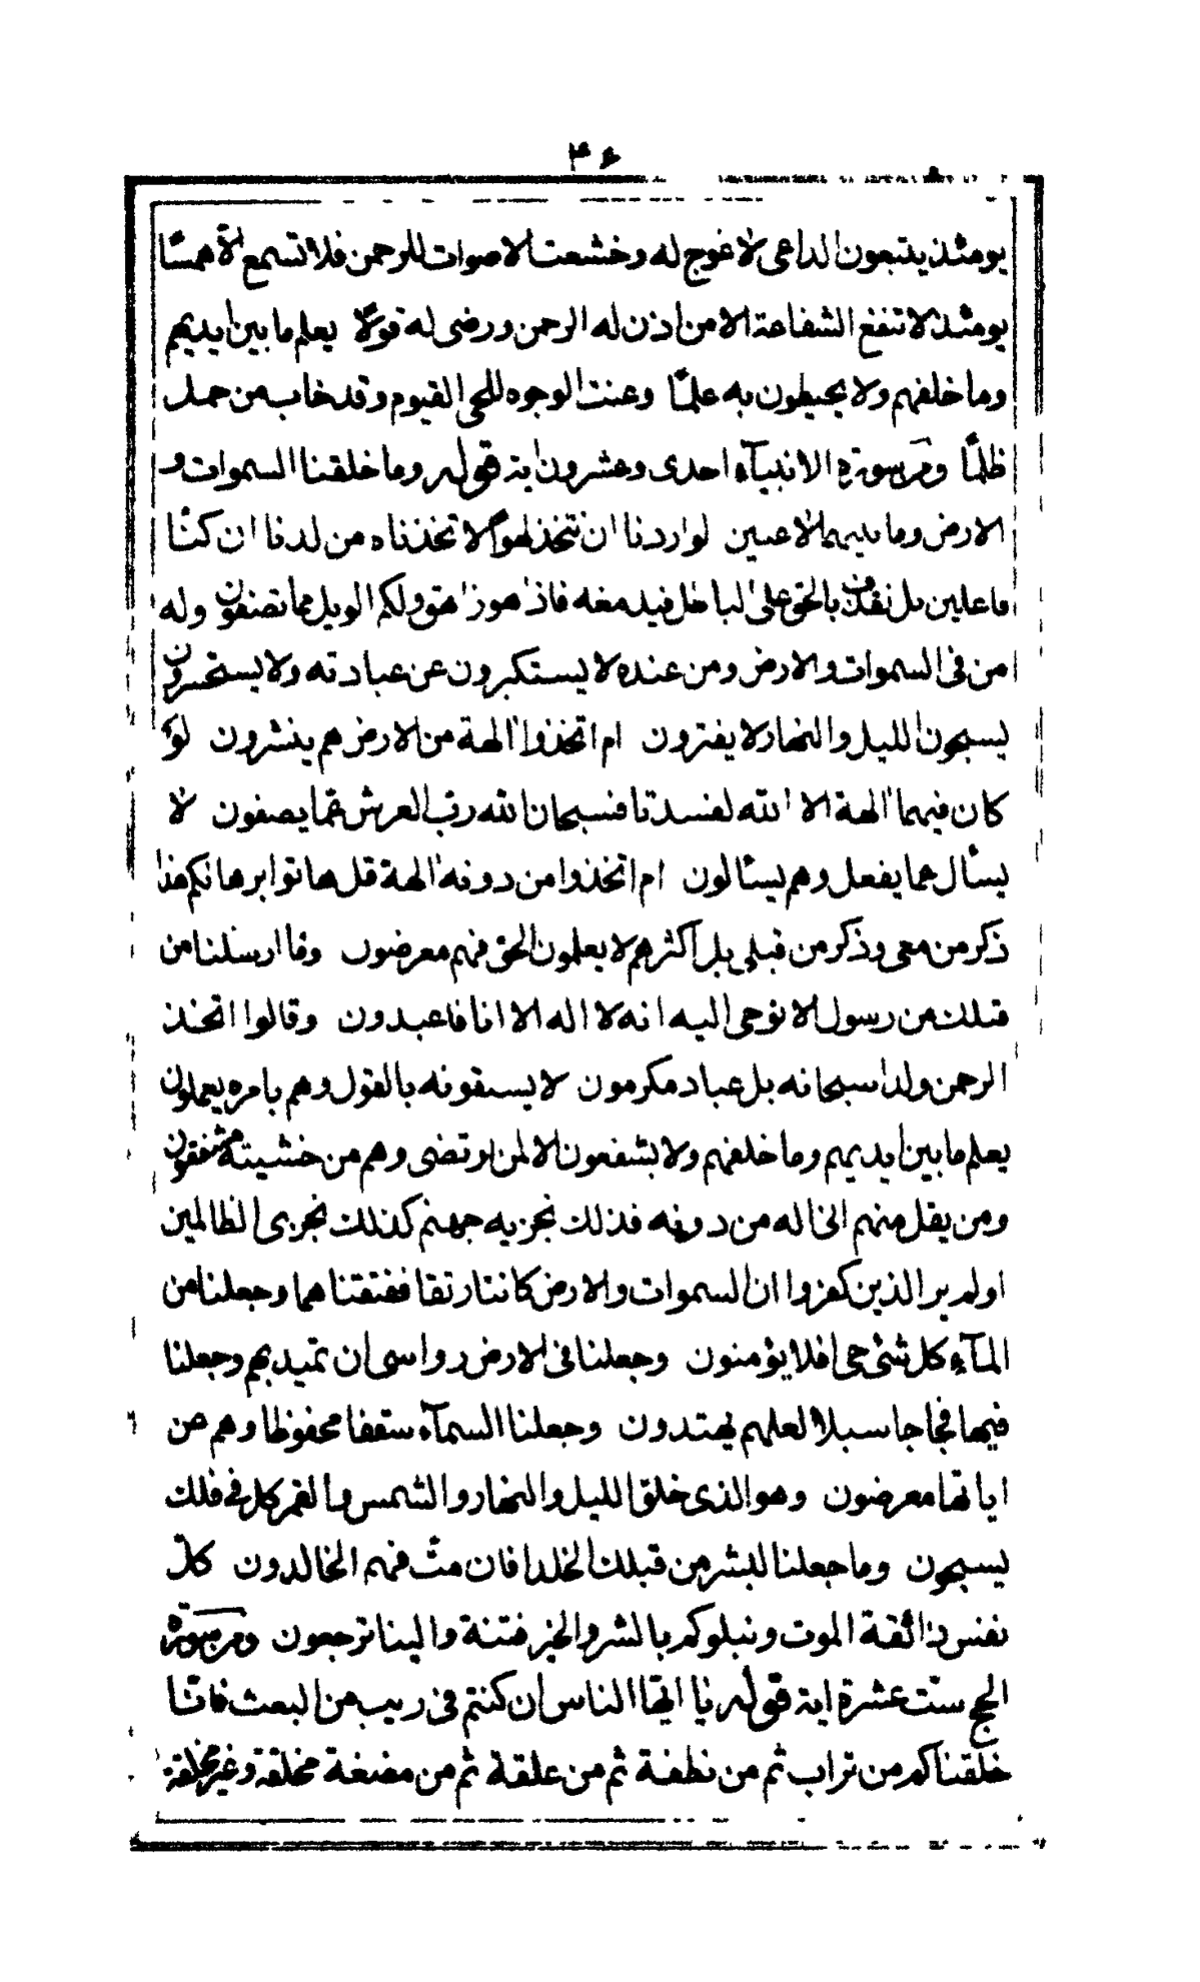 ۴۶
يومئذ يتبعون الداعى لا عوج له وخشعت الاصوات للرحمن فلا تسمع الا همسًا
يومئذ لا تنفع الشفاعة الا من اذن له الرحمن ورضى له قولًا يعلم ما بين ايديهم
وما خلفهم ولا يحيطون به علمًا وعنت الوجوه للحى القيوم وقد خاب من حمل
ظلمًا ومن سورة الانبيآء احدى وعشرون اية قوله وما خلقنا السموات و
الارض وما بينهما لاعبين لو اردنا ان نتخذ لهوًا لاتخذناه من لدنا ان كنّا
فاعلين بل نقذف بالحق على الباطل فيدمغه فاذا هو زاهق ولكم الويل مما تصفون وله
من فى السموات والارض ومن عنده لا يستكبرون عن عبادته ولا يستحسرون
يسبحون الليل والنهار لا يفترون ام اتخذوا الهة من الارض هم ينشرون لو
كان فيهما الهة الا الله لفسدتا فسبحان الله رب العرش عما يصفون لا
يسأل عما يفعل وهم يسئالون ام اتخذوا من دونه الهة قل هاتوا برهانكم هذا
ذكر من معى وذكر من قبلى بل اكثرهم لا يعلمون الحق فهم معرضون وما ارسلنا من
قبلك من رسول الا نوحى اليه انه لا اله الا انا فاعبدون وقالوا اتخذ
الرحمن ولدا سبحانه بل عباد مكرمون لا يسبقونه بالقول وهم بامره يعملون
يعلم ما بين ايديهم وما خلفهم ولا يشفعون الا لمن ارتضى وهم من خشيته مشفقون
ومن يقل منهم انى اله من دونه فذلك نجزيه جهنم كذلك نجزى الظالمين
اولم ير الذين كفروا ان السموات والارض كانتا رتقا ففتقناهما وجعلنا من
المآء كل شئ حى افلا يؤمنون وجعلنا فى الارض رواسى ان تميد بهم وجعلنا
فيها فجاجا سبلا لعلهم يهتدون وجعلنا السمآء سقفا محفوظا وهم عن
اياتها معرضون وهو الذى خلق الليل والنهار والشمس والقمر كل فى فلك
يسبحون وما جعلنا لبشر من قبلك الخلد افان متّ فهم الخالدون كلّ
نفس ذائقة الموت ونبلوكم بالشر والخير فتنة والينا ترجعون ومن سورة
الحج ستّ عشرة اية قوله يا ايّها الناس ان كنتم فى ريب من البعث فانّا
خلقناكم من تراب ثم من نطفة ثم من علقة ثم من مضغة مخلقة وغير مخلقة